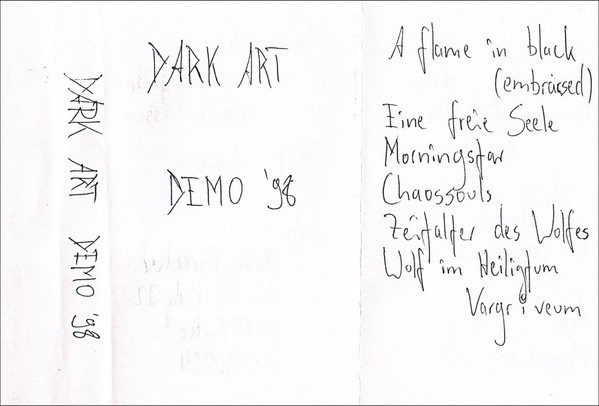 DARK ART DEMO '98
DARK ART
DEMO '98
A flame in black
(embraced)
Eine freie Seele
Morningstar
Chaossouls
Zeitalter des Wolfes
Wolf im Heiligtum
Vargr i veum